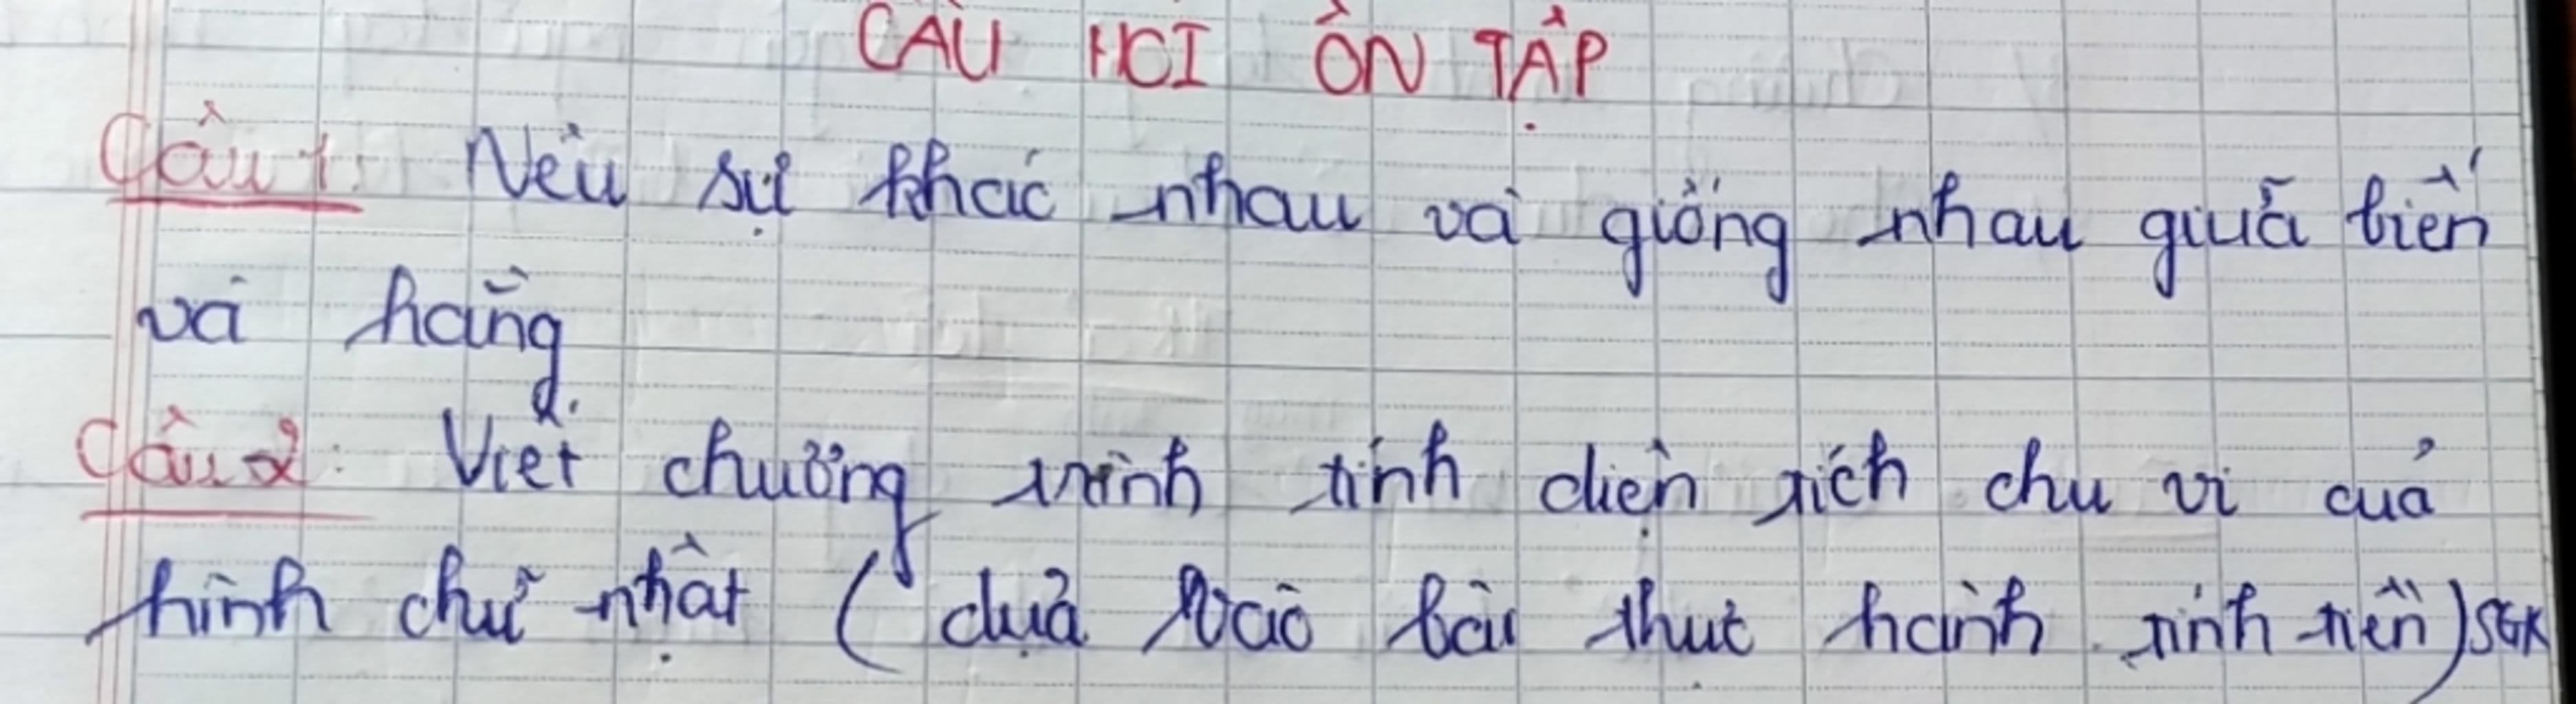 CÂU HỎI ÔN TẬP
Câu 1: Nêu sự khác nhau và giống nhau giữa biến
và hằng.
Câu 2: Viết chương trình tính diện tích chu vi của
hình chữ nhật ( dựa vào bài thực hành tính tiền) SGK